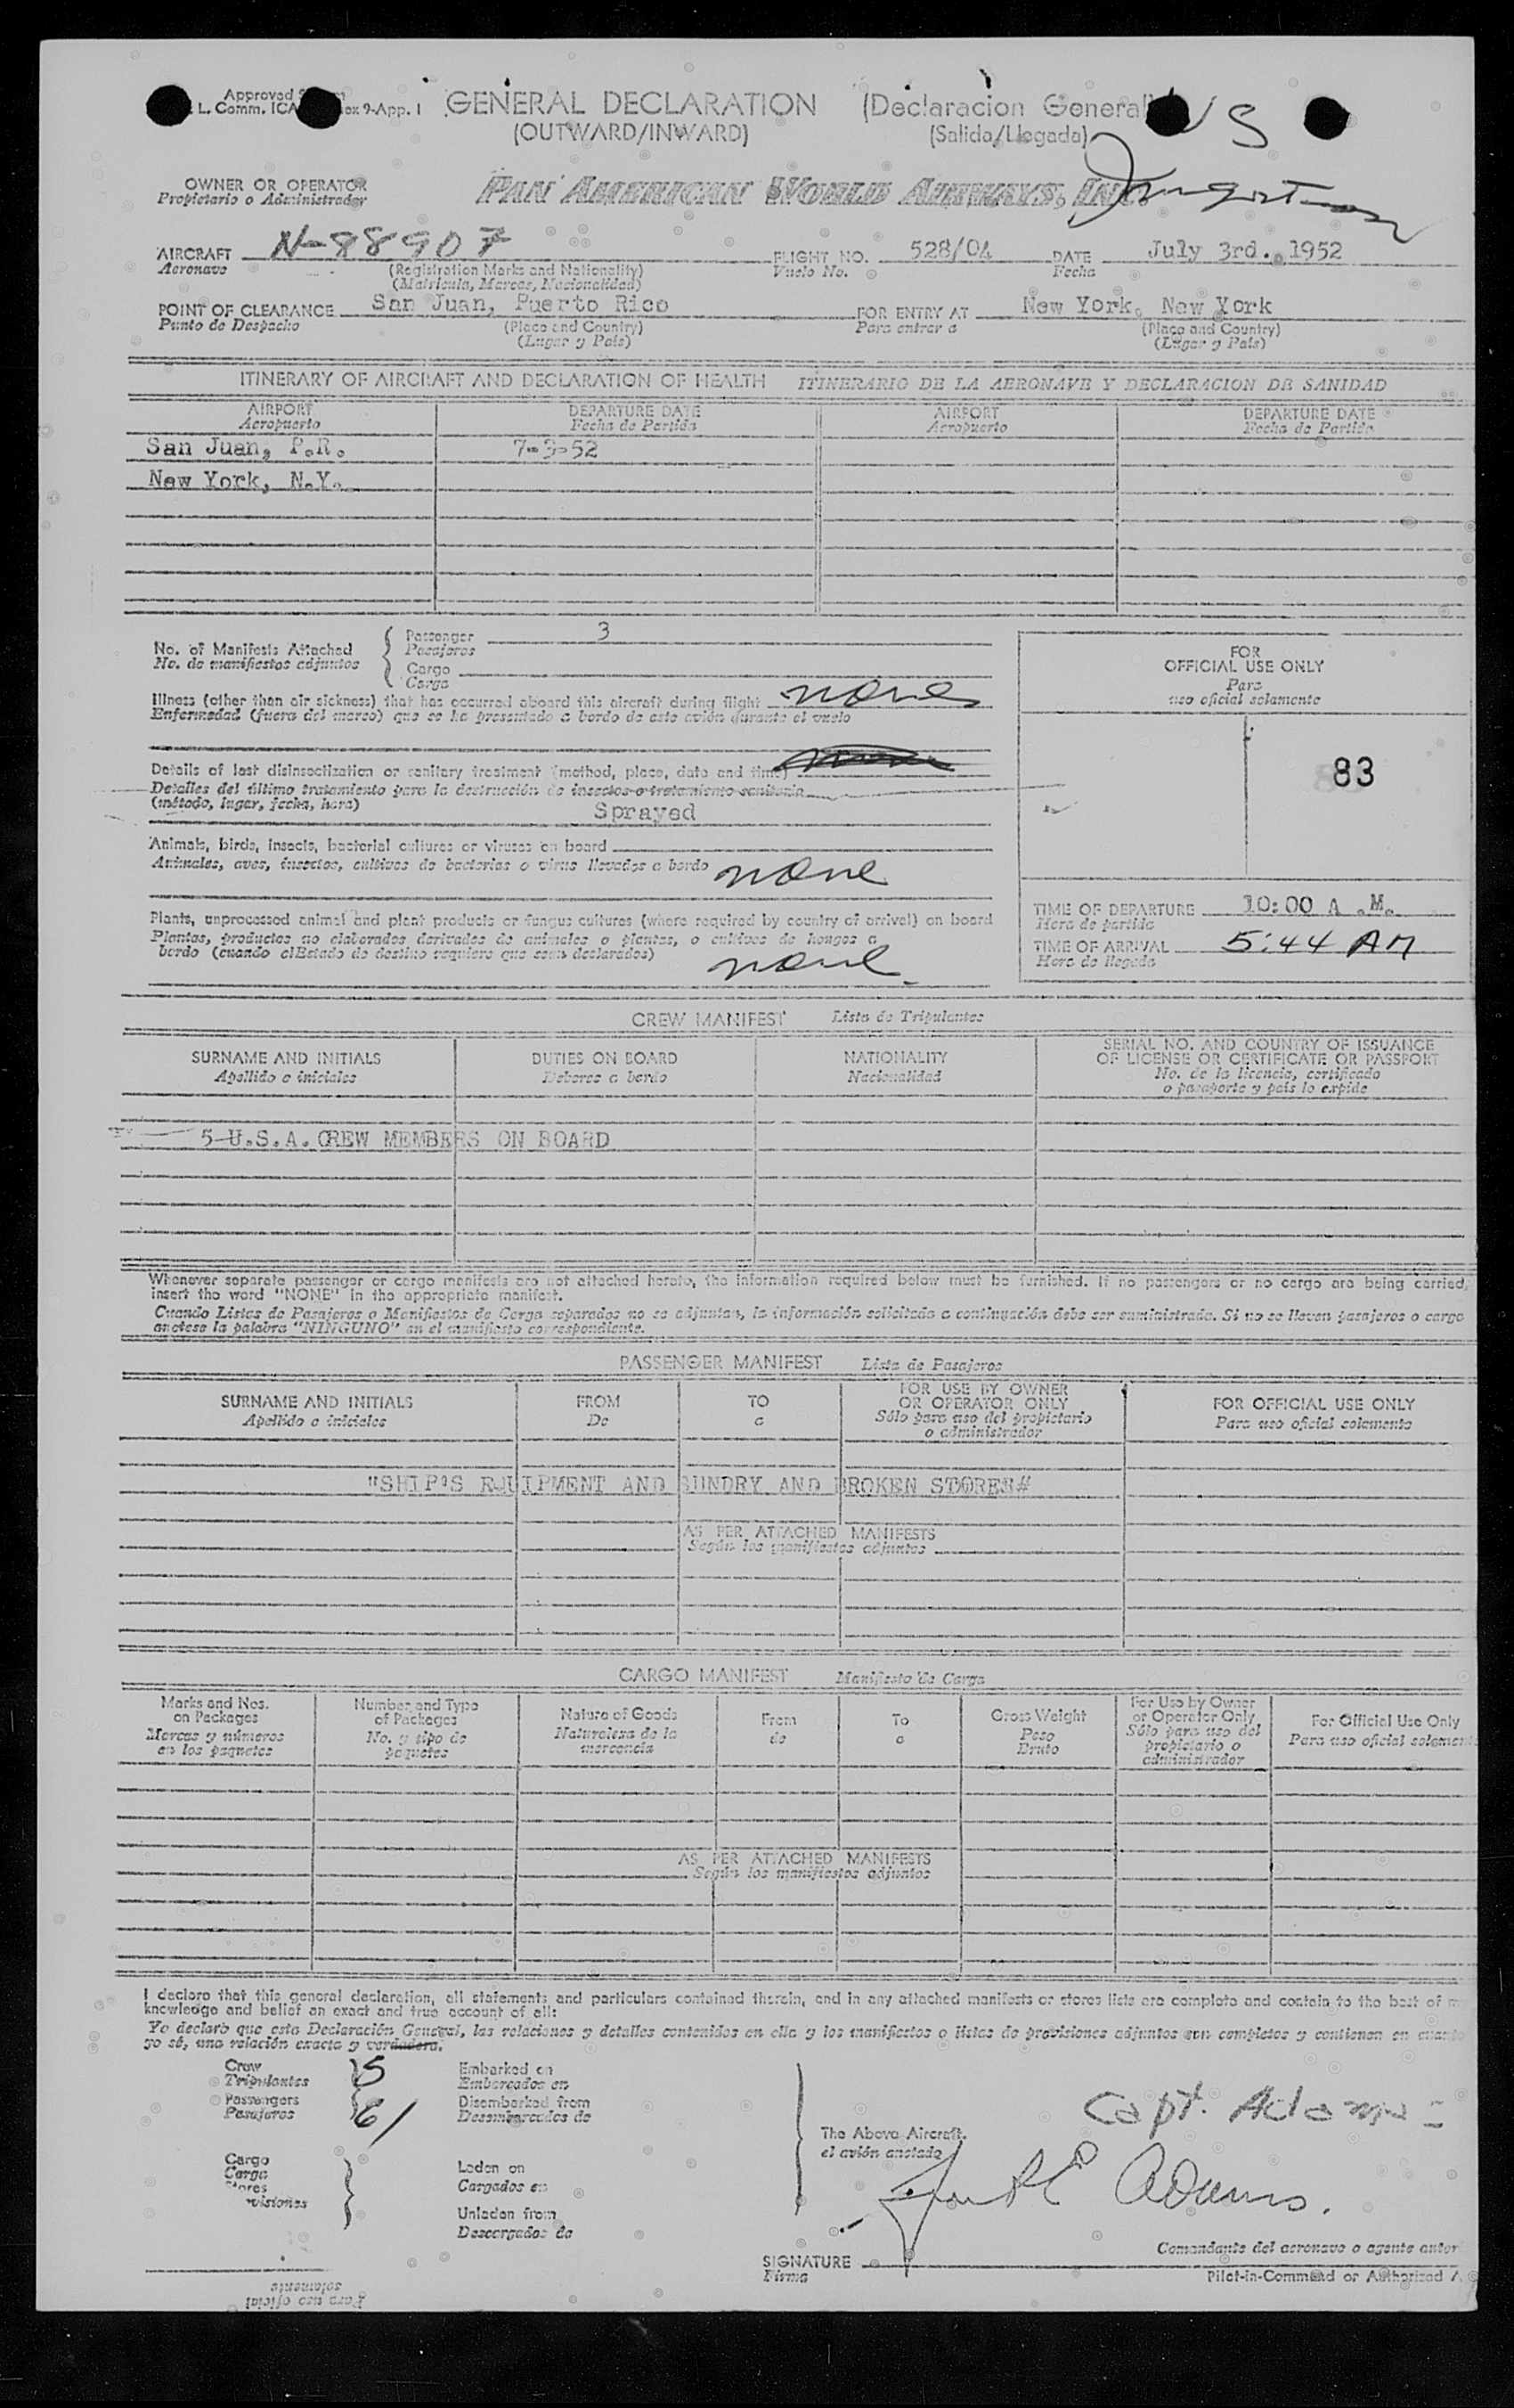 Approved
L. Comm. ICA ex 9-App. I
GENERAL DECLARATION (Declaracion General)
(OUTWARD/INWARD) (Salida/Llegada)
OWNER OR OPERATOR
Propietario o Administrador
PAN AMERICAN WORLD AIRWAYS, INC.
AIRCRAFT N-88907 FLIGHT NO. 528/04 DATE July 3rd. 1952
Aeronave Vuelo No. Fecha
(Registration Marks and Nationality)
(Matricula, Marcas, Nacionalidad)
POINT OF CLEARANCE San Juan, Puerto Rico FOR ENTRY AT New York, New York
Punto de Despacho (Place and Country) Para entrar a (Place and Country)
(Lugar y Pais) (Lugar y Pais)
ITINERARY OF AIRCRAFT AND DECLARATION OF HEALTH ITINERARIO DE LA AERONAVE Y DECLARACION DE SANIDAD
AIRPORT DEPARTURE DATE AIRPORT DEPARTURE DATE
Aeropuerto Fecha de Partida Aeropuerto Fecha de Partida
San Juan, P.R. 7-3-52
New York, N.Y.
No. of Manifests Attached Passenger 3
No. de manifiestos adjuntos Pasajeros
Cargo
Carga
Illness (other than air sickness) that has occurred aboard this aircraft during flight none
Enfermedad (fuera del mareo) que se ha presentado a bordo de este avión durante el vuelo
Details of last disinsectization or sanitary treatment (method, place, date and time)
Detalles del último tratamiento para la destrucción de insectos o tratamiento sanitario
(método, lugar, fecha, hora)
Sprayed
Animals, birds, insects, bacterial cultures or viruses on board
Animales, aves, insectos, cultivos de bacterias o virus llevados a bordo none
Plants, unprocessed animal and plant products or fungus cultures (where required by country of arrival) on board
Plantas, productos no elaborados derivados de animales o plantas, o cultivos de hongos a
bordo (cuando el Estado de destino requiere que sean declarados) none
FOR
OFFICIAL USE ONLY
Para
uso oficial solamente
83
TIME OF DEPARTURE 10:00 A .M.
Hora de partida
TIME OF ARRIVAL 5:44 AM
Hora de llegada
CREW MANIFEST Lista de Tripulantes
SURNAME AND INITIALS DUTIES ON BOARD NATIONALITY SERIAL NO. AND COUNTRY OF ISSUANCE
OF LICENSE OR CERTIFICATE OR PASSPORT
Apellido e iniciales Deberes a bordo Nacionalidad No. de la licencia, certificado
o pasaporte y pais lo expide
5 U.S.A. CREW MEMBERS ON BOARD
Whenever separate passenger or cargo manifests are not attached hereto, the information required below must be furnished. If no passengers or no cargo are being carried,
insert the word "NONE" in the appropriate manifest.
Cuando Listas de Pasajeros o Manifiestos de Carga separados no se adjuntan, la información solicitada a continuación debe ser suministrada. Si no se llevan pasajeros o carga
anotese la palabra "NINGUNO" en el manifiesto correspondiente.
PASSENGER MANIFEST Lista de Pasajeros
SURNAME AND INITIALS FROM TO FOR USE BY OWNER
OR OPERATOR ONLY FOR OFFICIAL USE ONLY
Apellido e iniciales De a Sólo para uso del propietario
o administrador Para uso oficial solamente
"SHIP'S EQUIPMENT AND SUNDRY AND BROKEN STORES#
AS PER ATTACHED MANIFESTS
Según los manifiestos adjuntos
CARGO MANIFEST Manifiesto de Carga
Marks and Nos.
on Packages
Marcas y números
en los paquetes
Number and Type
of Packages
No. y tipo de
paquetes
Nature of Goods
Naturaleza de la
mercancia
From
de
To
a
Gross Weight
Peso
Bruto
For Use by Owner
or Operator Only
Sólo para uso del
propietario o
administrador
For Official Use Only
Para uso oficial solamen
AS PER ATTACHED MANIFESTS
Según los manifiestos adjuntos
I declare that this general declaration, all statements and particulars contained therein, and in any attached manifests or stores lists are complete and contain to the best of m
knowledge and belief an exact and true account of all:
Yo declaro que esta Declaración General, las relaciones y detalles contenidos en ella y los manifiestos o listas de provisiones adjuntos son completos y contienen en cuanto
yo sé, una relación exacta y verdadera.
Crew 5 Embarked on
Tripulantes Embarcados en
Passengers 61 Disembarked from
Pasajeros Desembarcados de
Capt. Adams
The Above Aircraft.
el avión anotado
Cargo Laden on
Carga Cargados en
Stores
visiones Unladen from
Descargados de
Adams.
Comandante del aeronave o agente autor
SIGNATURE
Firma
Pilot-in-Command or Authorized A
solamente
Para uso oficial